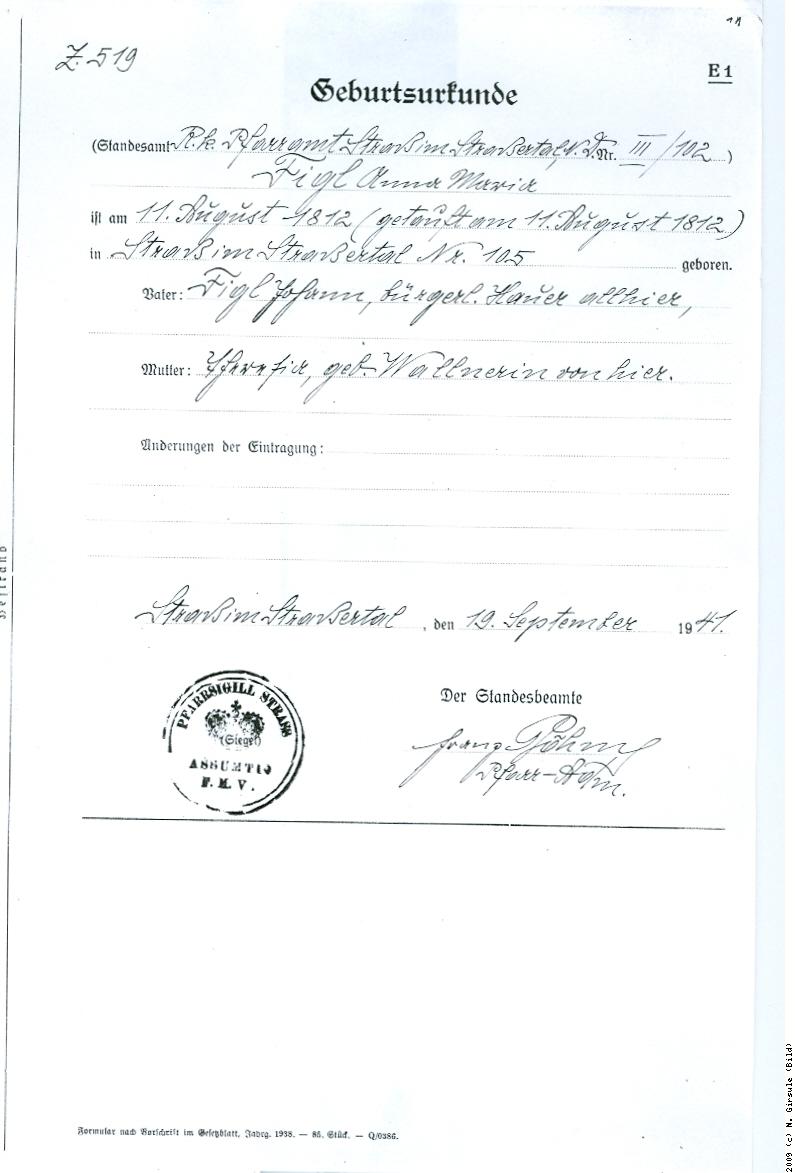 Z. 519
E 1
Geburtsurkunde
(Standesamt R. k. Pfarramt Straß im Straßertal, N. D. Nr. III/102)
Figl Anna Maria
ist am 11. August 1812 (getauft am 11. August 1812)
in Straß im Straßertal Nr. 105 geboren.
Vater: Figl Johann, bürgerl. Hauer allhier,
Mutter: Theresia, geb. Wallnerin von hier.
Änderungen der Eintragung:
Straß im Straßertal, den 19. September 1941.
Der Standesbeamte
PFARRSIGILL STRASS
(Siegel)
ASSUMTIO
Franz Böhm
Pfarr-Adm.
Formular nach Vorschrift im Gesetzblatt, Jahrg. 1938. — 85. Stück. — Q/0386.
2009 (c) N. Girsule (Bild)